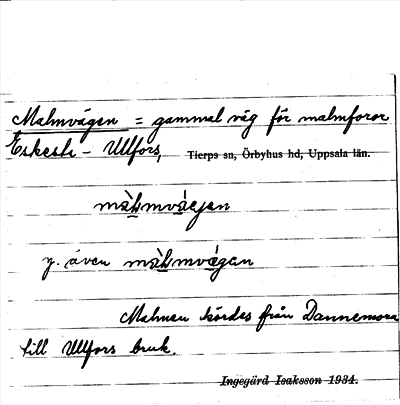 Malmvägen = gammal väg för malmforor
Eskesta - Ullfors, Tierps sn, Örbyhus hd, Uppsala län.
màlmvǽgen
y. även màlmvǽgan
Malmen kördes från Dannemora
till Ullfors bruk.
Ingegärd Isaksson 1934.